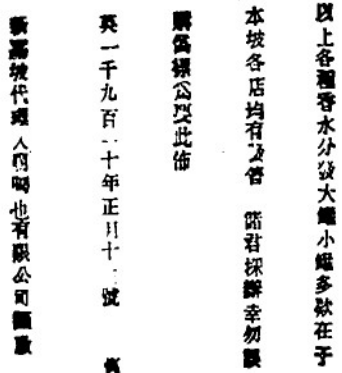 以上各種香水分發大罐小罐多欵在于
本坡各店均有發售 諸君採辦幸勿誤
購僞標 此佈
英一千九百一十年正月十 號
新嘉坡代理人 也有限公司 啟